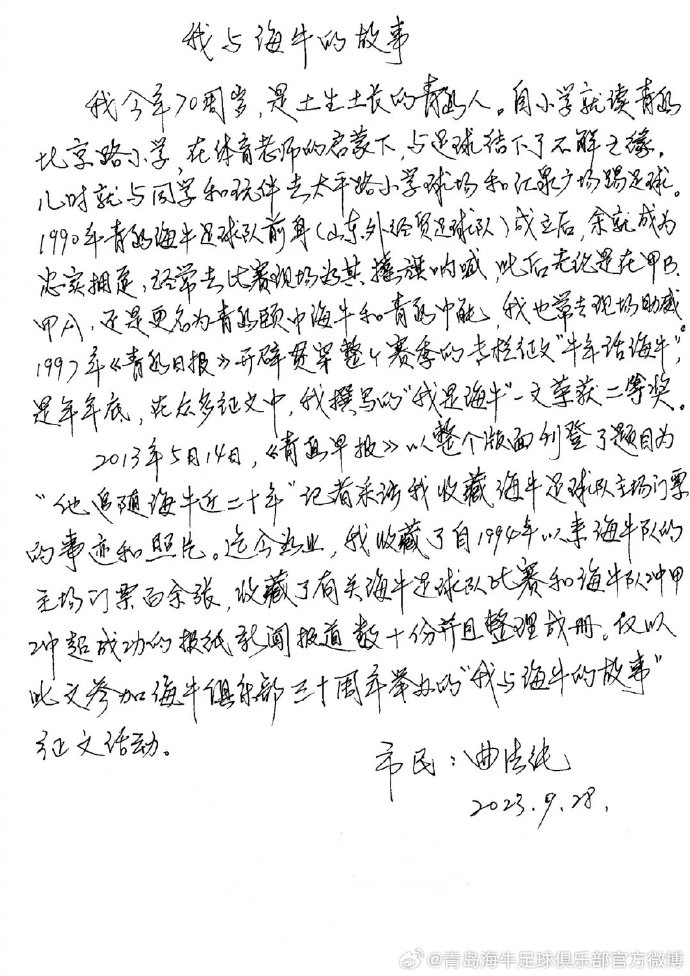 我与海牛的故事
我今年70周岁,是土生土长的青岛人。自小学就读青岛
北京路小学,在体育老师的启蒙下,与足球结下了不解之缘,
儿时就与同学和玩伴去太平路小学球场和汇泉广场踢足球。
1990年青岛海牛足球队前身(山东外经贸足球队)成立后,余就成为
忠实拥趸,经常去比赛现场为其摇旗呐喊,此后无论是在甲B、
甲A,还是更名为青岛颐中海牛和青岛中能,我也常去现场助威。
1997年《青岛日报》开辟贯穿整个赛季的专栏征文"牛年话海牛",
是年年底,在众多征文中,我撰写的"我是海牛"一文荣获二等奖。
2013年5月14日,《青岛早报》以整个版面刊登了题目为
"他追随海牛近二十年"记者采访我收藏海牛足球队主场门票
的事迹和照片。迄今为止,我收藏了自1994年以来海牛队的
主场门票百余张,收藏了有关海牛足球队比赛和海牛队冲甲
冲超成功的报纸新闻报道数十份并且整理成册。仅以
此文参加海牛俱乐部三十周年举办的"我与海牛的故事"
征文活动。
市民:曲法纯
2023.9.28.
@青岛海牛足球俱乐部官方微博